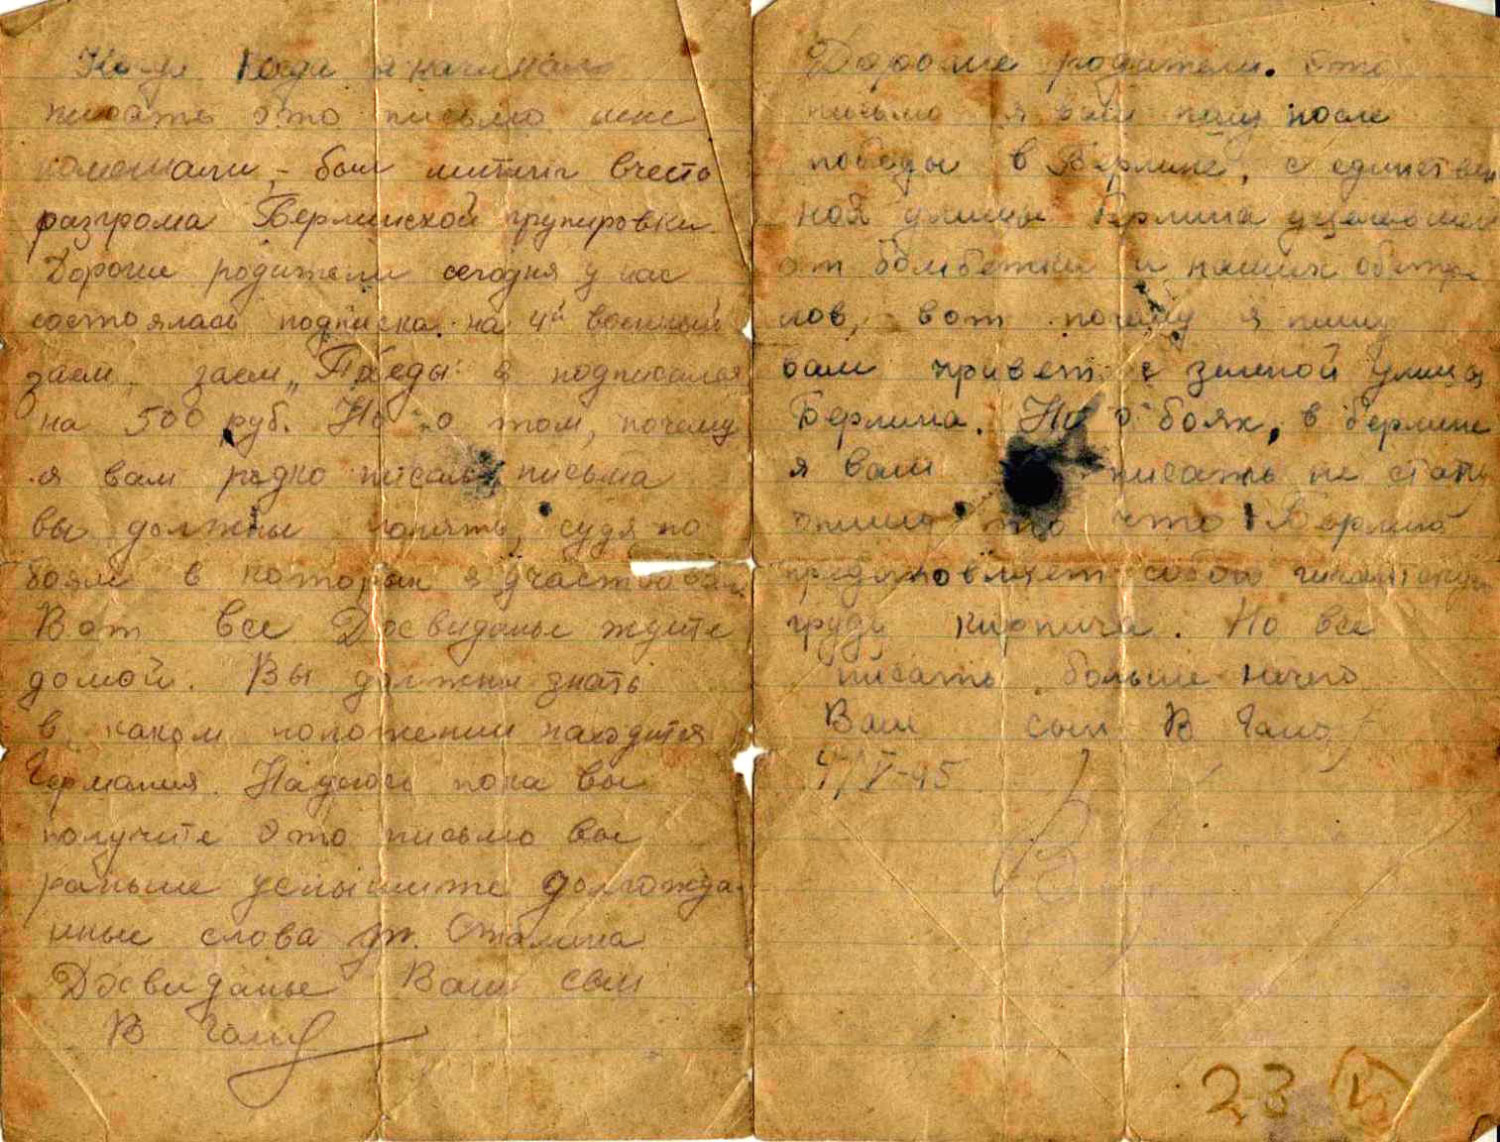 Когда я начинал
писать это письмо мне
помешали, - был митинг вчесть
разгрома Берлинской групировки.
Дорогие родители сегодня у нас
состоялась подписка на 4й военный
заем. заем „Победы" я подписался
на 500 руб. Но о том, почему
я вам редко писал письма
вы должны понять, судя по
боям в которых я участвовал
Вот все Досвиданье ждите
домой. Вы должны знать
в каком положении находится
Германия. Надеюсь пока вы
получите это письмо вы
раньше услышите долгожда-
нные слова т. Сталина
Досвиданье Ваш сын
В
Дорогие родители. Это
письмо я вам пишу после
победы в Берлине, с единствен
ной улицы Берлина уцелевшей
от бомбежки и наших обстре
лов, вот почему я пишу
вам привет с зеленой улицы
Берлина. Но о боях, в берлине
я вам писать не стану
то что Берлин
представляет собой гигантскую
груду кирпича. Но все
писать больше нечего
Ваш сын В
V-45
23